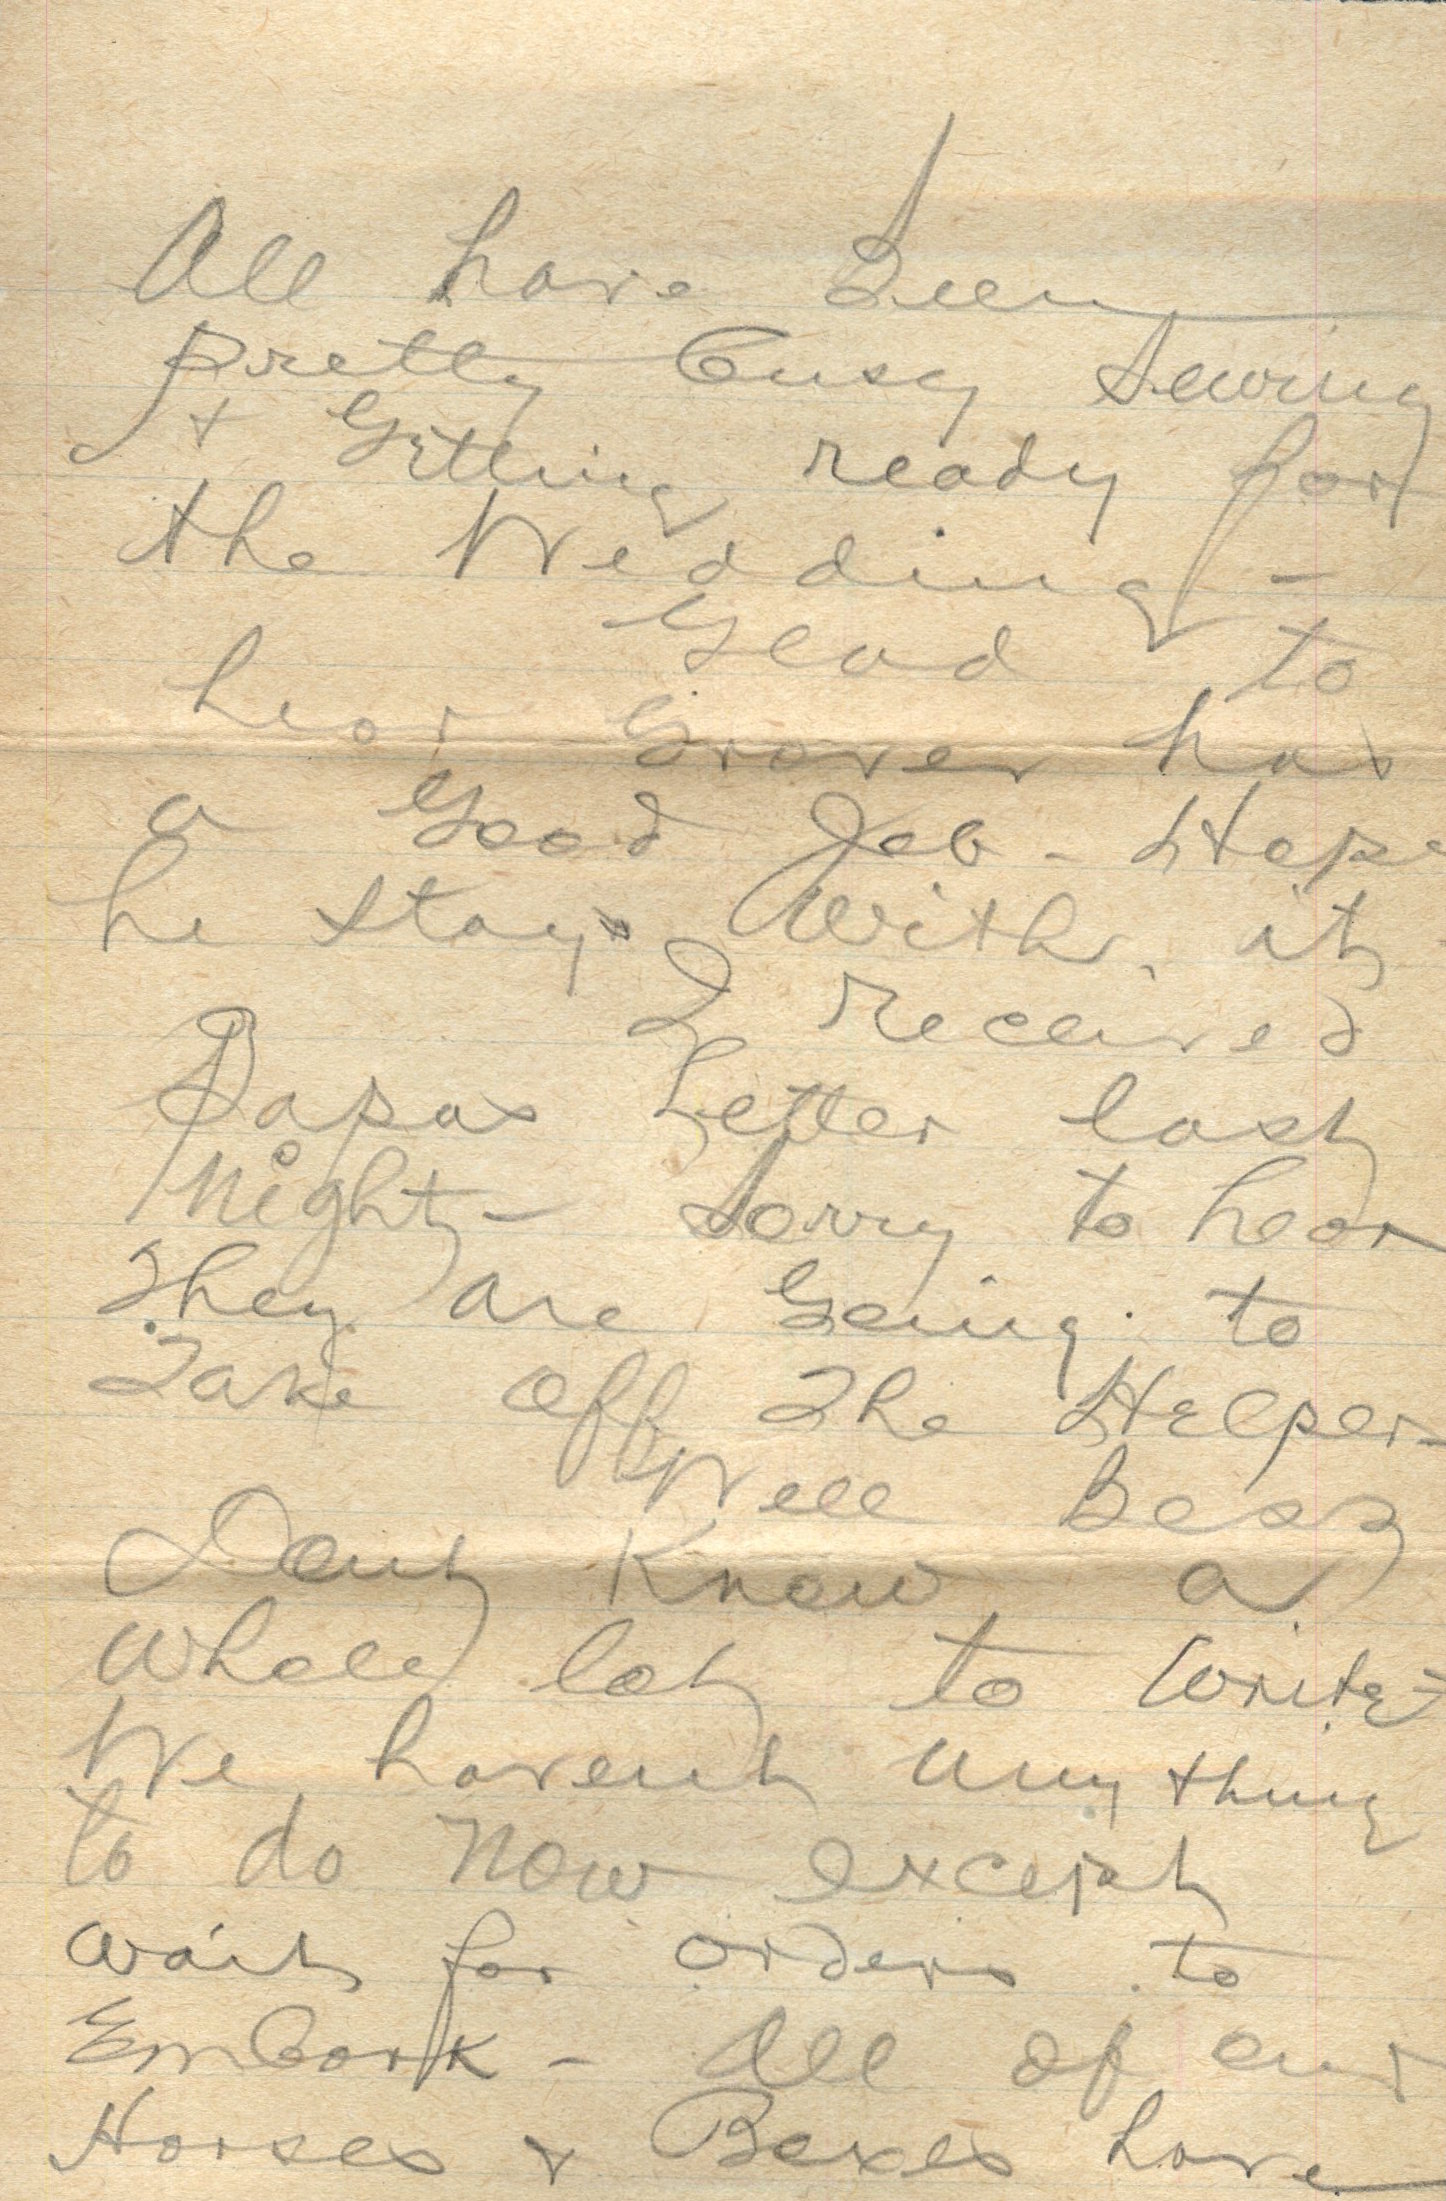 All have Been
pretty Busy Sewing
+ Getting ready for
the Wedding -
Glad to
hear Grover has
a Good Job - Hope
he stays with it
I received
Papas Letter last
Night - Sorry to hear
They are Going to
Take off The Helper -
Well Bess
Dont Know a
Whole lot to Write -
We havent anything
to do Now except
wait for orders to
Embark - All of our
Horses & Boxes have